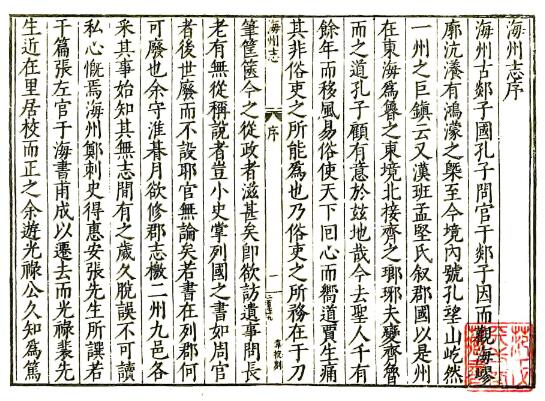 海州志序
海州古郯子國孔子問官于郯子因而觀海嵺
廓沆瀁有鴻濛之槩至今境內號孔望山屹然
一州之巨鎮云又漢班孟堅氏叙郡國以是州
在東海為魯之東境北接齊之瑯琊夫變齊魯
而之道孔子顧有意於兹地哉今去聖人千有
餘年而移風易俗使天下回心而嚮道賈生痛
其非俗吏之所能為也乃俗吏之所務在于刀
海州志
序
一
筆筐篋今之從政者滋甚矣卽欲訪遺事問長
老有無從稱說者豈小史掌列國之書如周官
者後世廢而不設耶官無論矣若書在列郡何
可廢也余守淮朞月欲修郡志檄二州九邑各
采其事始知其無志間有之歲久脫誤不可讀
私心慨焉海州鄭刺史得惠安張先生所譔若
干篇張左官于海書甫成以遷去而光祿裴先
生近在里居校而正之余遊光祿公久知為篤